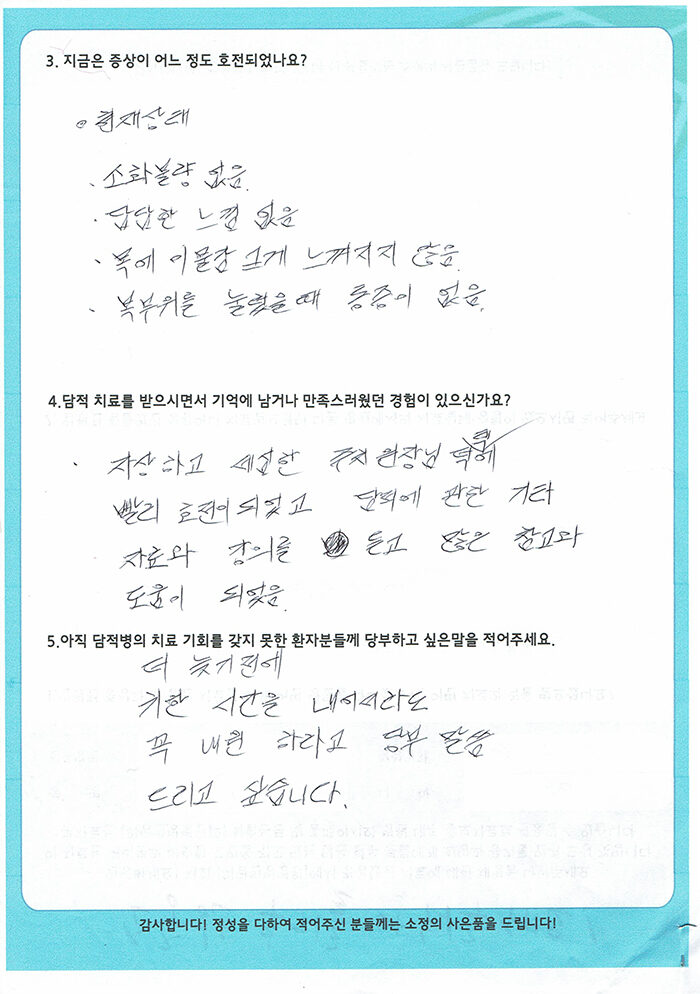 3. 지금은 증상이 어느 정도 호전되었나요?
현재상태
· 소화불량 없음.
· 답답한 느낌 없음
· 목에 이물감 크게 느껴지지 않음.
· 복부위를 눌렀을때 통증이 없음.
4.담적 치료를 받으시면서 기억에 남거나 만족스러웠던 경험이 있으신가요?
· 자상하고 세심한 원장님 덕에
빨리 호전이 되었고 관한 기타
자료와 강의를 듣고 많은 참고와
도움이 되었음.
5.아직 담적병의 치료 기회를 갖지 못한 환자분들께 당부하고 싶은말을 적어주세요.
더 늦기전에
귀한 시간을 내어서라도
꼭 내원 하라고 당부 말씀
드리고 싶습니다.
감사합니다! 정성을 다하여 적어주신 분들께는 소정의 사은품을 드립니다!